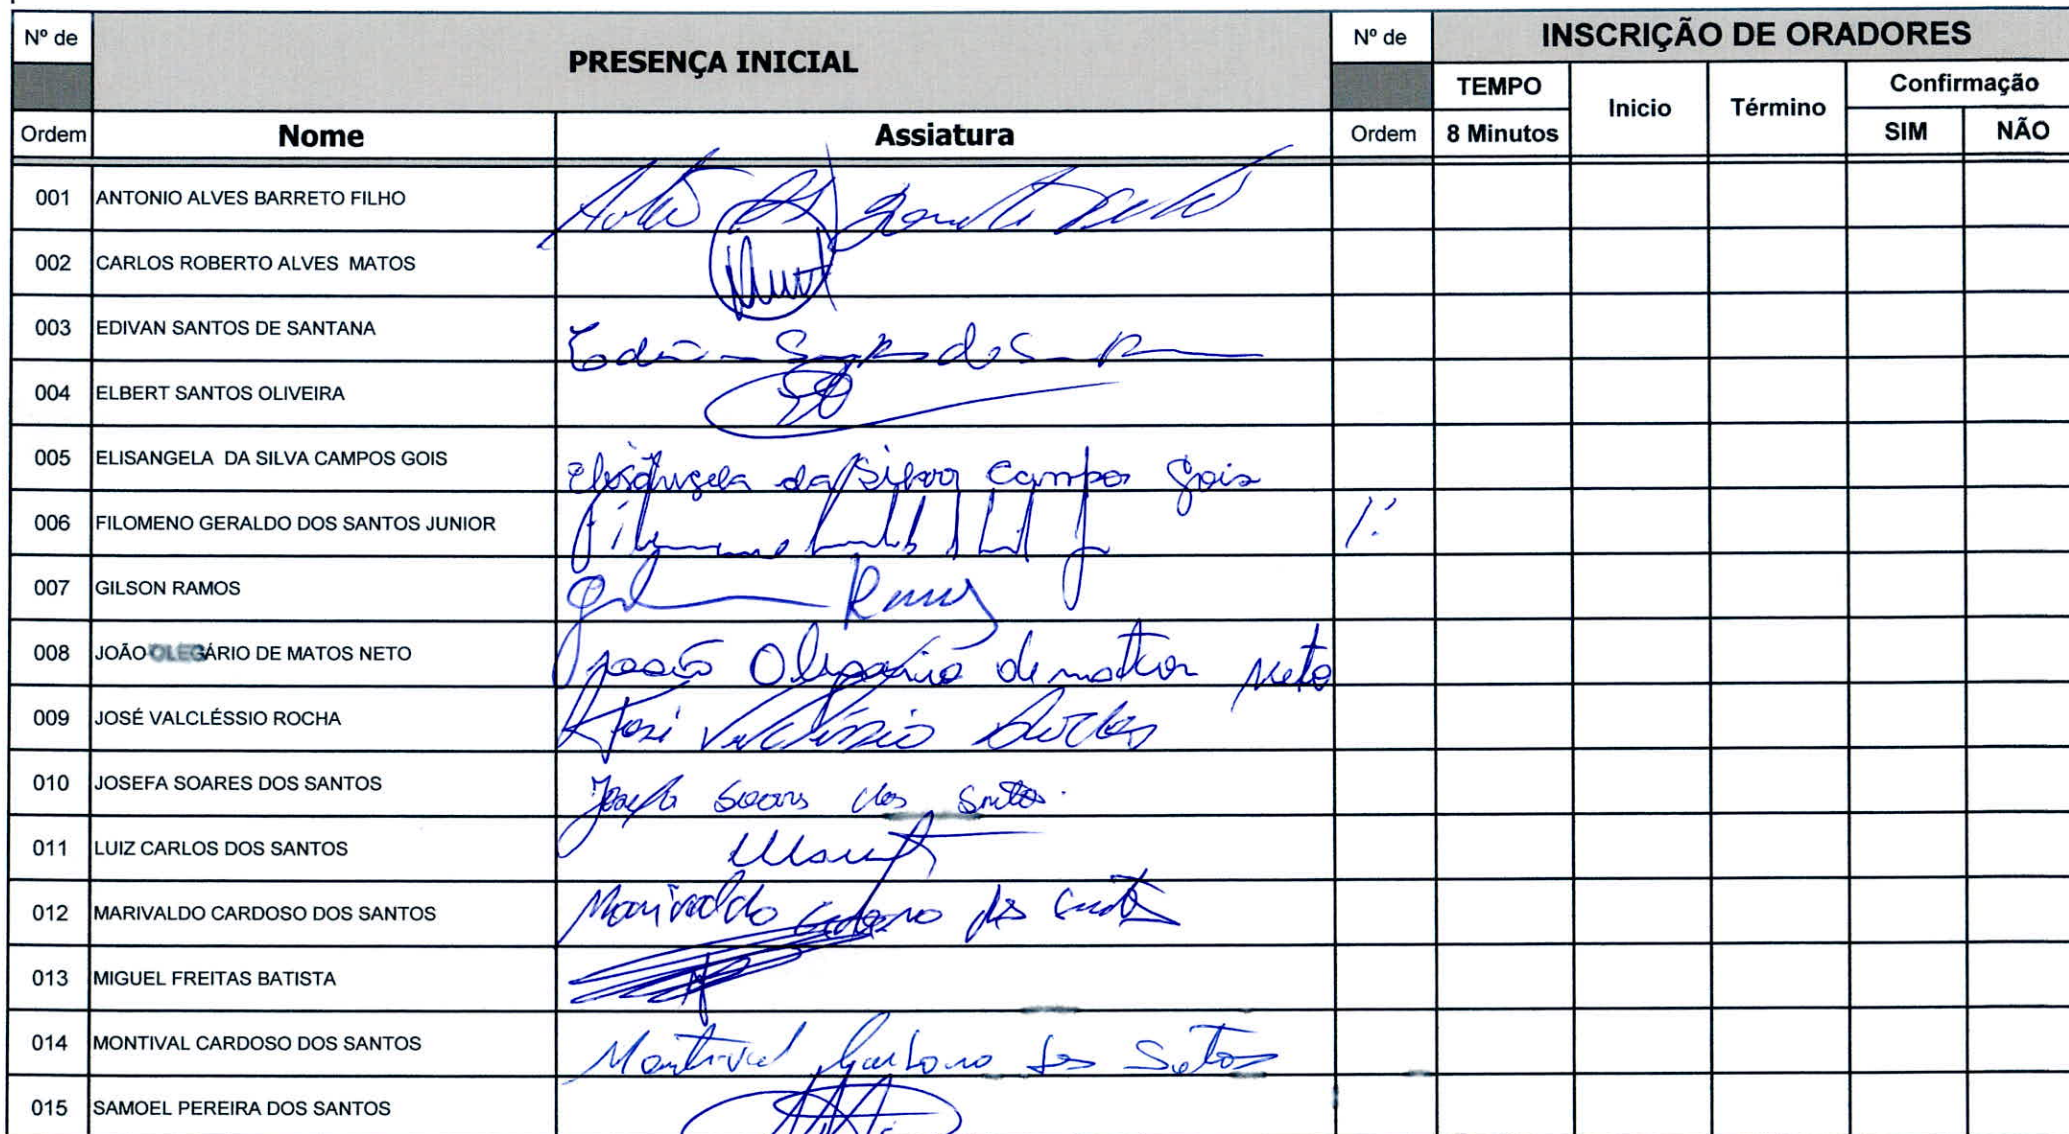 Nº de PRESENÇA INICIAL Nº de INSCRIÇÃO DE ORADORES
TEMPO Inicio Término Confirmação
Ordem Nome Assiatura Ordem 8 Minutos SIM NÃO
001 ANTONIO ALVES BARRETO FILHO
002 CARLOS ROBERTO ALVES MATOS
003 EDIVAN SANTOS DE SANTANA
004 ELBERT SANTOS OLIVEIRA
005 ELISANGELA DA SILVA CAMPOS GOIS Elisângela da Silva Campos Gois
006 FILOMENO GERALDO DOS SANTOS JUNIOR
007 GILSON RAMOS
008 JOÃO OLEGÁRIO DE MATOS NETO João Olegário de Matos Neto
009 JOSÉ VALCLÉSSIO ROCHA
010 JOSEFA SOARES DOS SANTOS Josefa Soares dos Santos
011 LUIZ CARLOS DOS SANTOS
012 MARIVALDO CARDOSO DOS SANTOS Marivaldo Cardoso dos Santos
013 MIGUEL FREITAS BATISTA
014 MONTIVAL CARDOSO DOS SANTOS Montival Cardoso dos Santos
015 SAMOEL PEREIRA DOS SANTOS